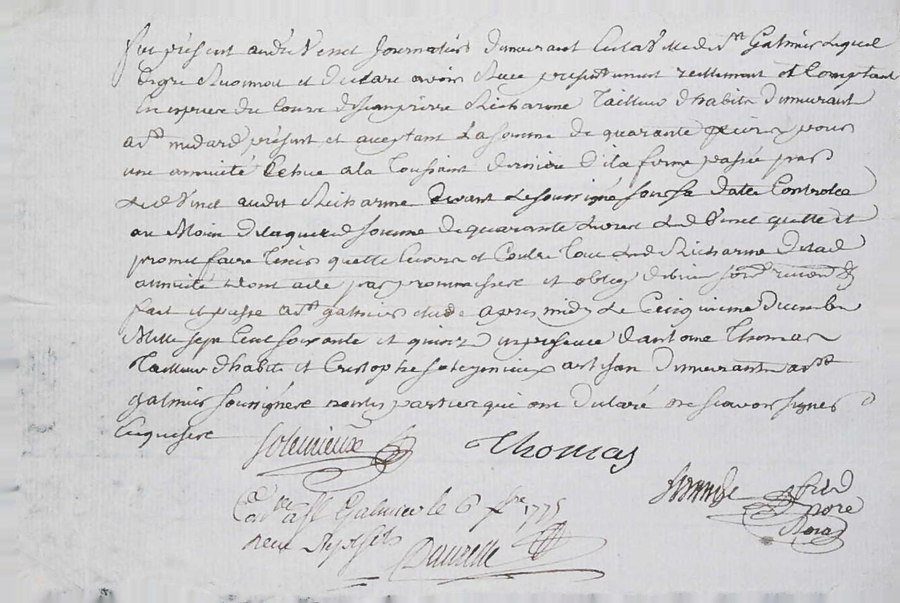 fut présent andré Vinet Journalier demeurant en la ville de st Galmier lequel
de gré a reconnu et declare avoir Reçu presentement reellement et Comptant
En espece du Cours de Jean pierre Richarme Tailleur d'habits demeurant
a st medard présent et aceptant La somme de quarante livres pour
une annuité Echue a la Toussaint derniere de la ferme passée par
Led Vinet audit Richarme devant Le soussigné sous sa date Controlée
au Moien de laquelle somme de quarante Livres Led Vinet quitte et
promet faire Tenir quitte Envers et Contre Tous Led Richarme de lad
annuité dont acte par promesses et oblig de biens
fait et passé a st galmier etude apres midy Le Cinquieme decembre
Mille sept Cent soixante et quinze en presence d'antoine Thomas
Tailleur d'habits et Cristophe solegnieux artisan demeurants a st
galmier soussignés non les parties qui ont declaré ne sçavoir signer
Enquises
Solemieux Thomas
a st Galmier le 6 1775
Reçu